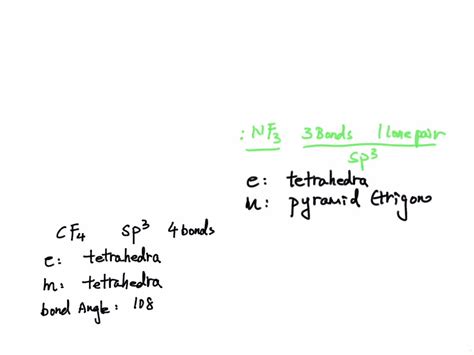 :NF3 3Bonds 1 lone pair
sp3
e: tetrahedra
m: pyramid (trigono
CF4 sp3 4 bonds
e: tetrahedra
m: tetrahedra
bond Angle: 108